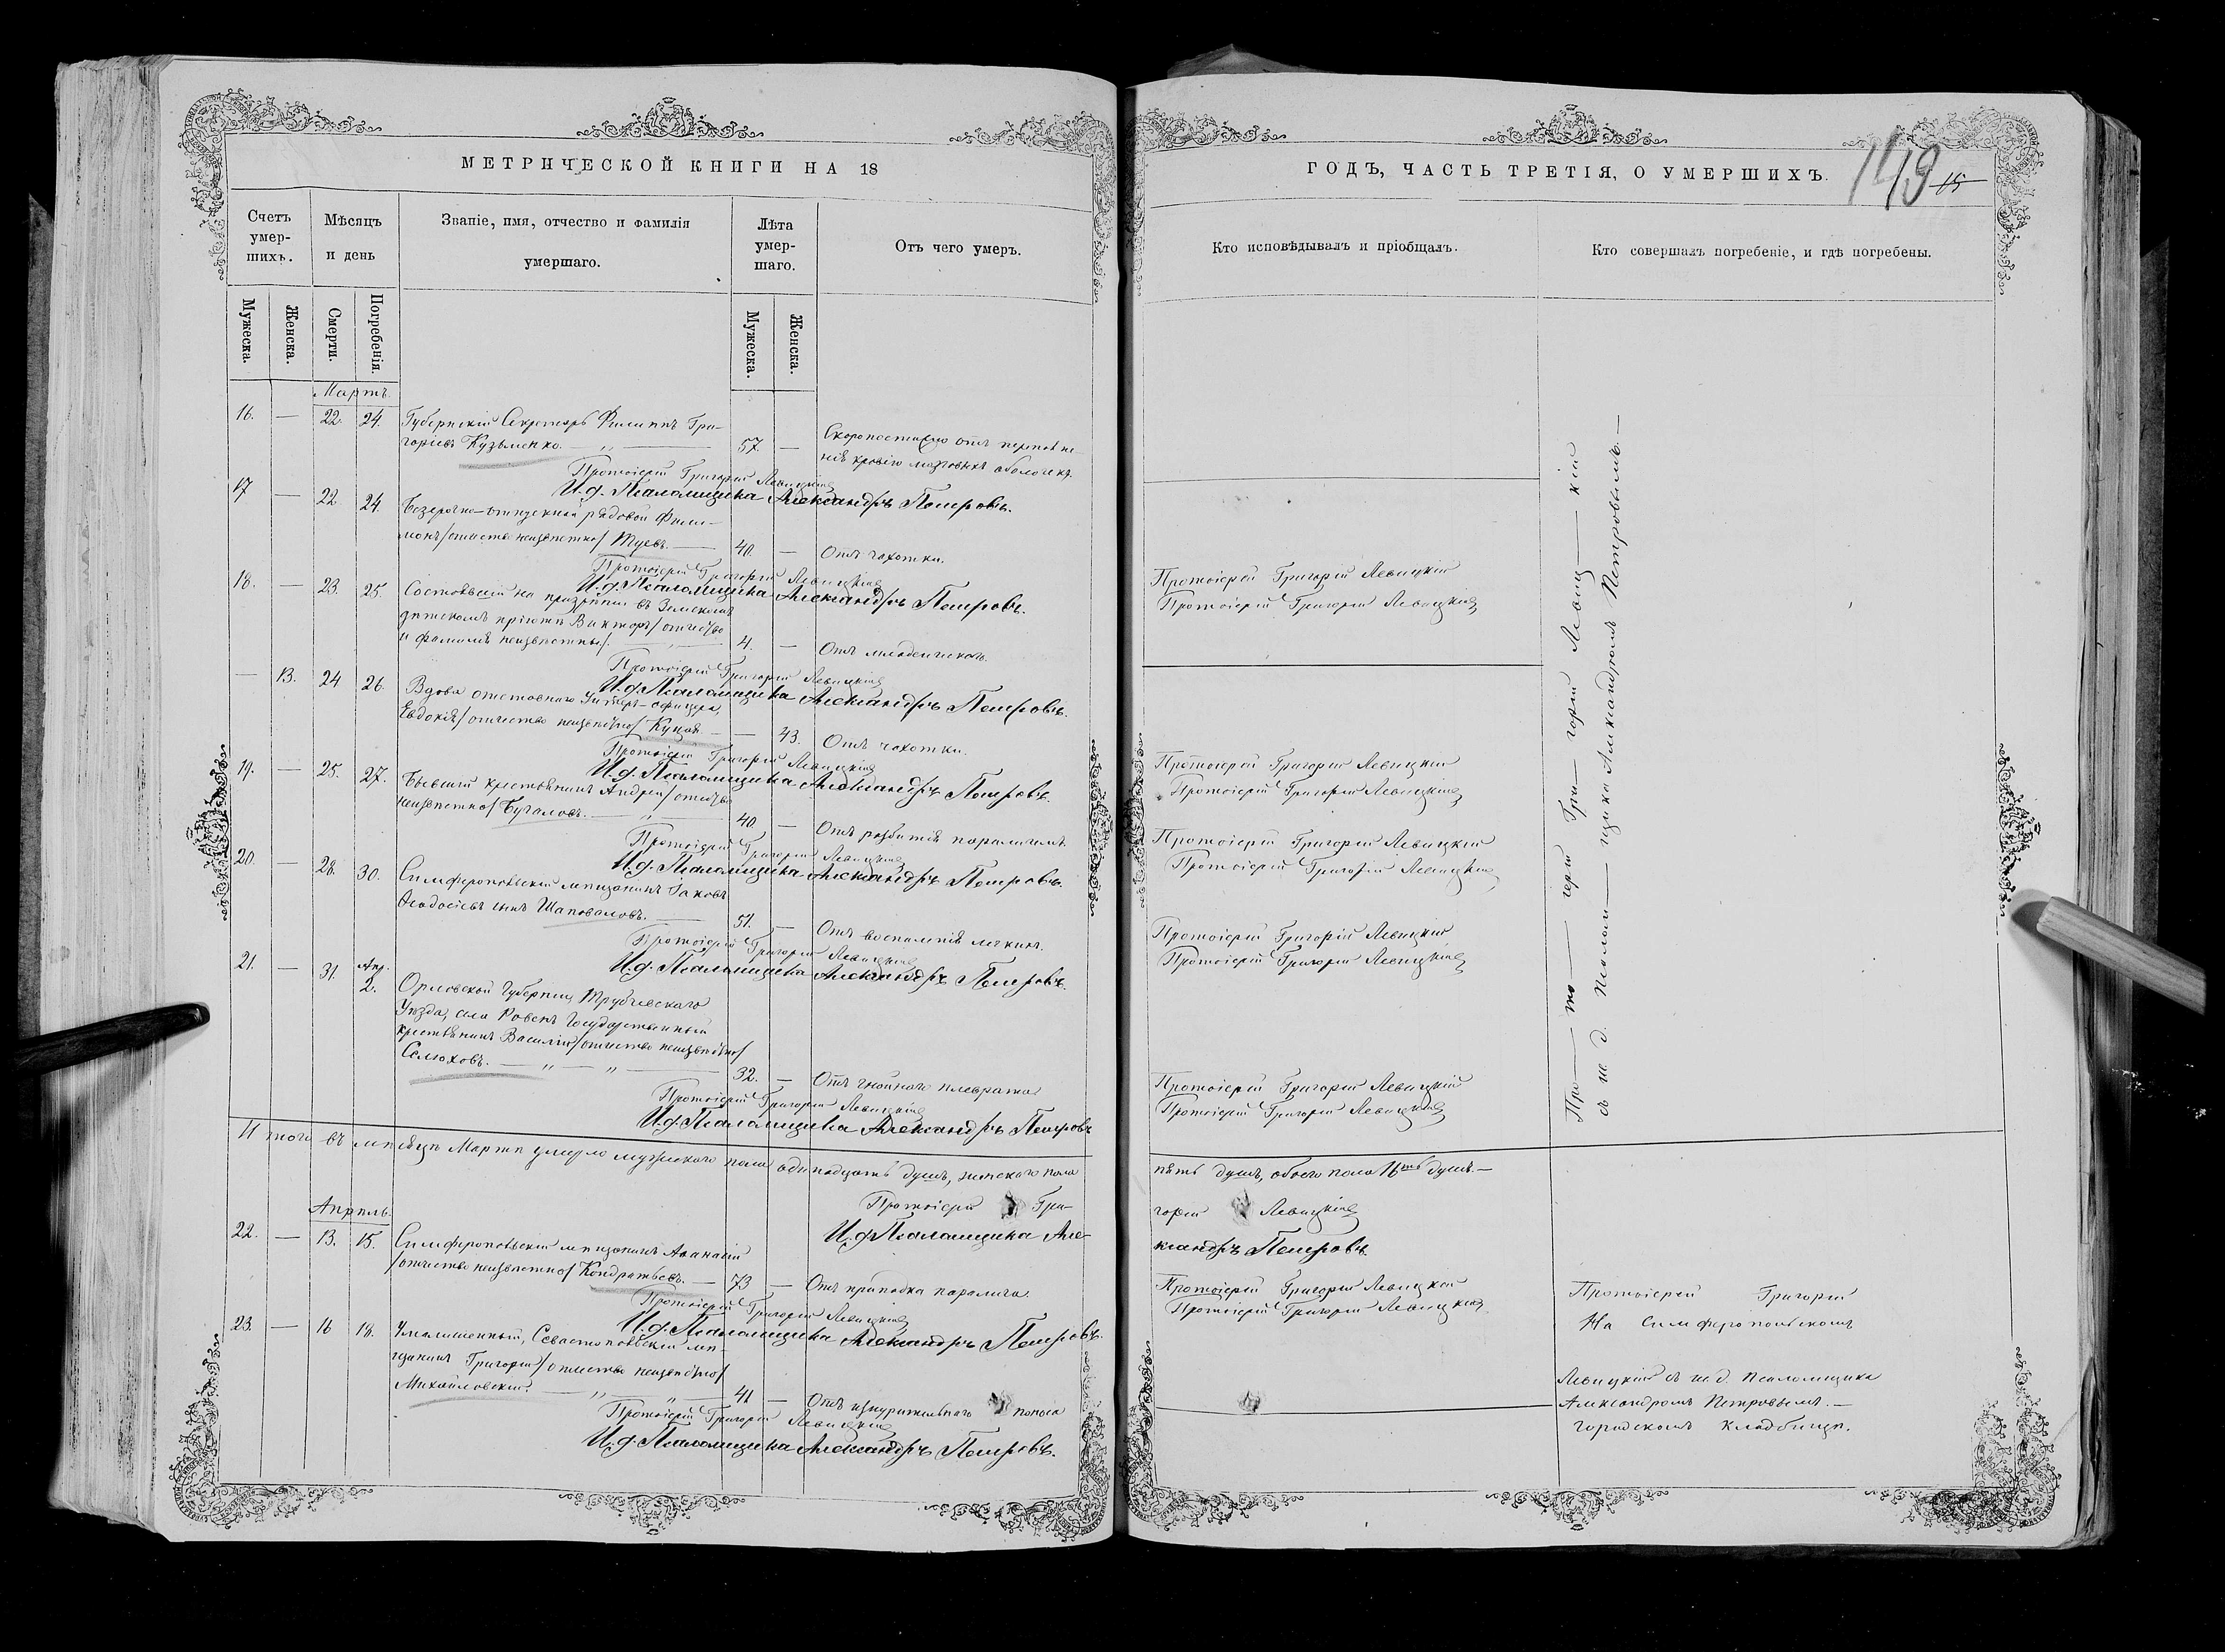 МЕТРИЧЕСКОЙ КНИГИ НА 18
Счетъ умер-шихъ.
Мѣсяцъ и день
Званіе, имя, отчество и фамилія умершаго.
Лѣта умер-шаго.
Отъ чего умеръ.
Мужеска.
Женска.
Смерти.
Погребенія.
Мужеска.
Женска.
Мартъ.
16. — 22. 24. Губернскій Секретарь Филиппъ Гри-
горіевъ Кузьменко. 57. — Скоропостижно отъ переполне-
нія кровію мозговыхъ оболочекъ.
Протоіерей Григорій Левицкій
И.д. Псаломщика Александръ Петровъ.
17 — 22. 24. Безсрочно-отпускной рядовой Фили-
монъ /отчество неизвѣстно/ 40. — Отъ чахотки.
Протоіерей Григорій Левицкій
И.д. Псаломщика Александръ Петровъ.
18. — 23. 25. Состоявшій на призрѣніи въ Земскомъ
дѣтскомъ пріютѣ Викторъ /отчество
и фамилія неизвѣстны/. 4. — Отъ младенческой.
Протоіерей Григорій Левицкій
И.д. Псаломщика Александръ Петровъ.
— 13. 24 26. Вдова отставнаго Унтеръ-офицера,
Евдокія /отчество неизвѣстно/ Куцая. — 43. Отъ чахотки.
Протоіерей Григорій Левицкій
И.д. Псаломщика Александръ Петровъ.
19. — 25. 27. Бывшій крестьянинъ Андрей /отчество
неизвѣстно/ Бугаловъ. 40. — Отъ разбитія параличемъ.
Протоіерей Григорій Левицкій
И.д. Псаломщика Александръ Петровъ.
20. — 28. 30. Симферопольскій мѣщанинъ Іаковъ
Ѳеодосіевъ сынъ Шаповаловъ. 51. — Отъ воспаленія легкихъ.
Протоіерей Григорій Левицкій
И.д. Псаломщика Александръ Петровъ.
21. — 31. Апр. 2. Орловской Губерніи, Трубчевскаго
Уѣзда, села Ровенъ Государственный
крестьянинъ Василій /отчество неизвѣстно/
Селюховъ. 32. — Отъ гнойнаго плеврата
Протоіерей Григорій Левицкій
И.д. Псаломщика Александръ Петровъ
Итого въ мѣсяцѣ Мартѣ умерло мужескаго пола одинадцать душъ, женскаго пола
Протоіерей Гри-
И.д. Псаломщика Але-
Апрѣль.
22. — 13. 15. Симферопольскій мѣщанинъ Аѳанасій
/отчество неизвѣстно/ Кондратьевъ. — 73 — Отъ припадка паралича.
Протоіерей Григорій Левицкій
И.д. Псаломщика Александръ Петровъ.
23. — 16 18. Умалишенный, Севастопольскій мѣ-
щанинъ Григорій /отчество неизвѣстно/
Михайловскій. 41 — Отъ изнурительнаго поноса
Протоіерей Григорій Левицкій
И.д. Псаломщика Александръ Петровъ.
ГОДЪ, ЧАСТЬ ТРЕТІЯ, О УМЕРШИХЪ.
149 15
Кто исповѣдывалъ и пріобщалъ.
Кто совершалъ погребеніе, и гдѣ погребены.
Протоіерей Григорій Левицкій
Протоіерей Григорій Левицкій
Протоіерей Григорій Левицкій
Протоіерей Григорій Левицкій
Протоіерей Григорій Левицкій
Протоіерей Григорій Левицкій
Протоіерей Григорій Левицкій
Протоіерей Григорій Левицкій
Протоіерей Григорій Левицкій
Протоіерей Григорій Левицкій
Про — то — іерей Гри — горій Левиц — кій
съ и. д. Псалом — щика Александромъ Петровымъ. —
пять душъ, обоего пола 16ть душъ. —
горій Левицкій
ксандръ Петровъ.
Протоіерей Григорій Левицкій
Протоіерей Григорій Левицкій
Протоіерей Григорій
На Симферопольскомъ
Левицкій съ и.д. Псаломщика
Александромъ Петровымъ. —
городскомъ кладбищѣ.